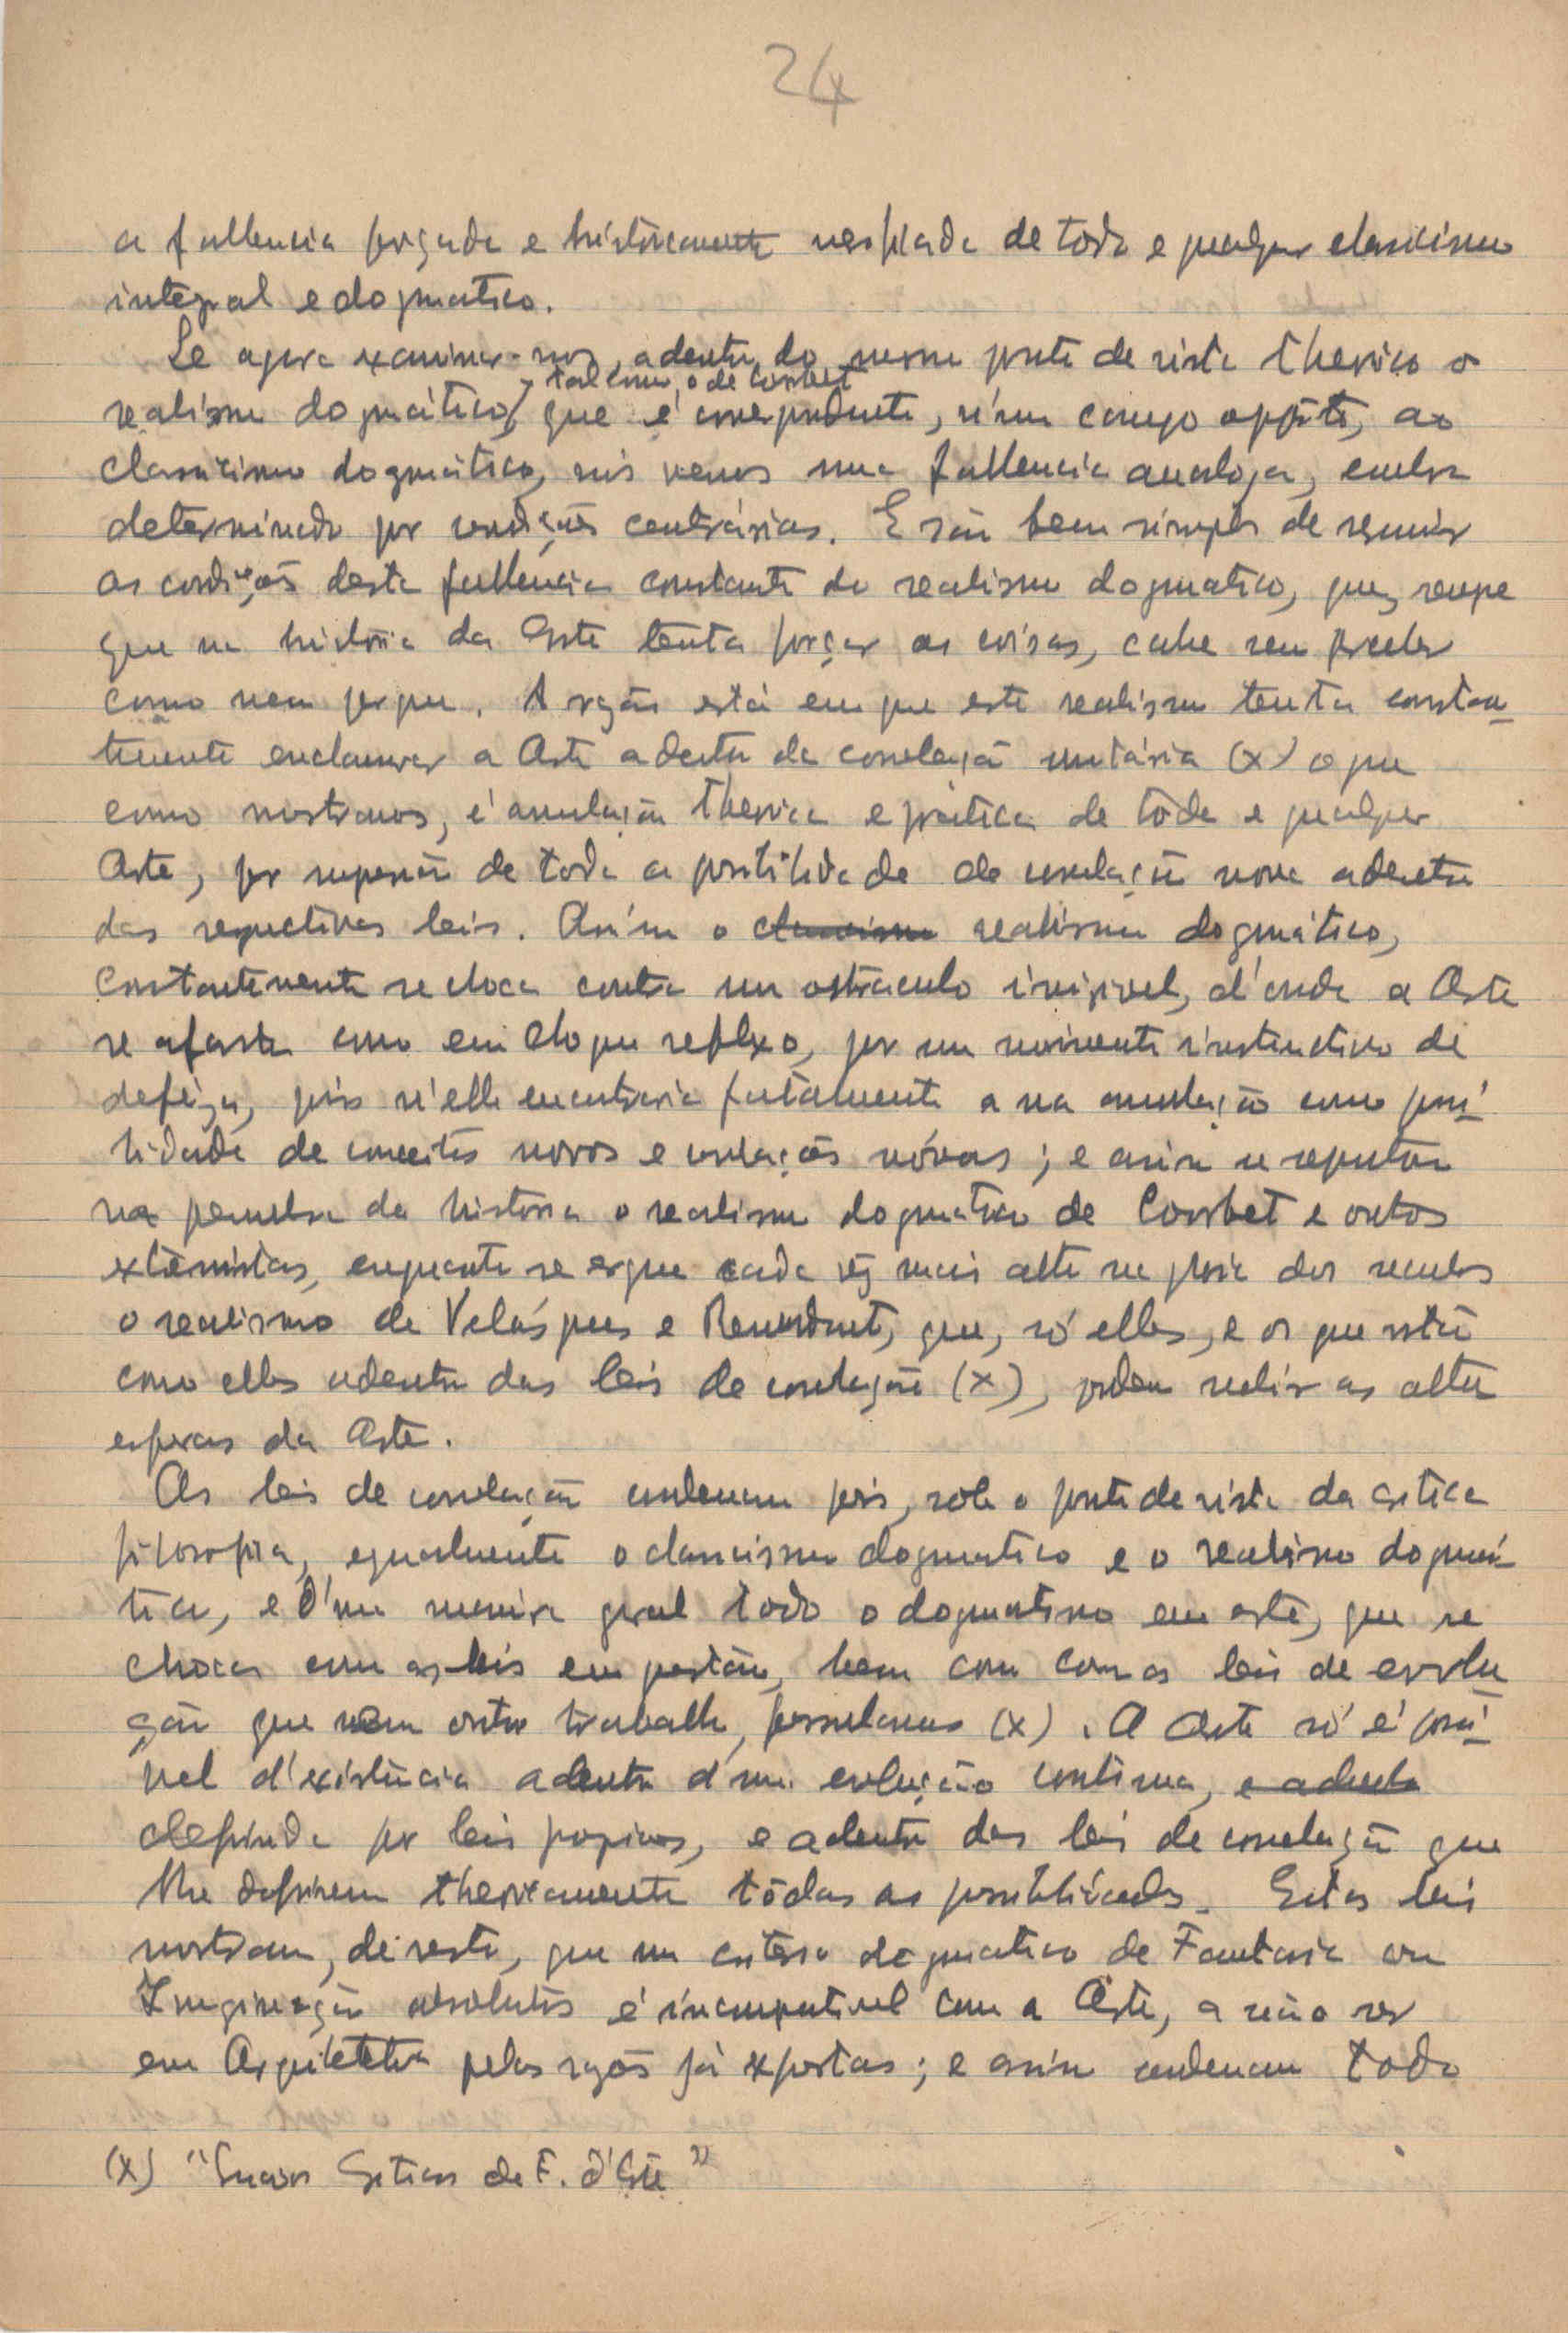 24
a fallencia forçada e historicamente verificada de todo e qualquer classicismo
integral e dogmatico.
Se agora examinar-mos, adentro do mesmo ponto de vista theorico o
tal como o de Courbet
realismo dogmático, que é correspondente, n'um campo opposto, ao
classicismo dogmático, nós vemos uma fallencia analoga, embora
determinada por condições contrárias. E são bem simples de resumir
as condições desta fallencia constante do realismo dogmatico, que, sempre
que na história da Arte tenta forçar as coisas, cahe sem perceber
como nem porque. A razão está em que este realismo tenta constan-
temente enclausurar a Arte adentro da correlação unitária (x) o que
como mostramos, é anulação theorica e prática de tôda e qualquer
Arte, por supressão de toda a possibilidade de correlação nova adentro
das respectivas leis. Assim o classicismo realismo dogmático,
constantemente se choca contra um obstaculo invisivel, d'onde a Arte
se afasta como em choque reflexo, por um movimento instinctivo de
defeza, pois n'elle encontraria fatalmente a sua anulação como possi-
lidade de conceitos novos e correlações nóvas; e assim se sepultou
na penumbra da historia o realismo dogmatico de Courbet e outros
extremistas, enquanto se ergue cada vez mais alto na gloria dos seculos
o realismo de Velásques e Rembrandt, que, só elles, e os que estão
como elles adentro das leis de correlação (x), podem subir as altas
esferas da Arte.
As leis de correlação condenam pois, sob o ponto de vista da critica
filosofica, egualmente o classicismo dogmatico e o realismo dogmá-
tico, e d'uma maneira geral todo o dogmatismo em arte, que se
choca com as leis em questão, bem com com as leis de evolu-
ção que n'um outro trabalho, formulamos (x). A Arte só é possi-
vel d'existência adentro d'uma evolução continua, e adentro
definida por leis proprias, e adentro das leis de correlação que
lhe definem theoricamente tôdas as possibilidades. Estas leis
mostram, de resto, que um criterio dogmatico de Fantasia ou
Imaginação absolutas é incompativel com a Arte, a não ser
em Arquitetura pelas razões já expostas; e assim condenam todo
(x) "Ensaios Criticos de F. d'Arte"